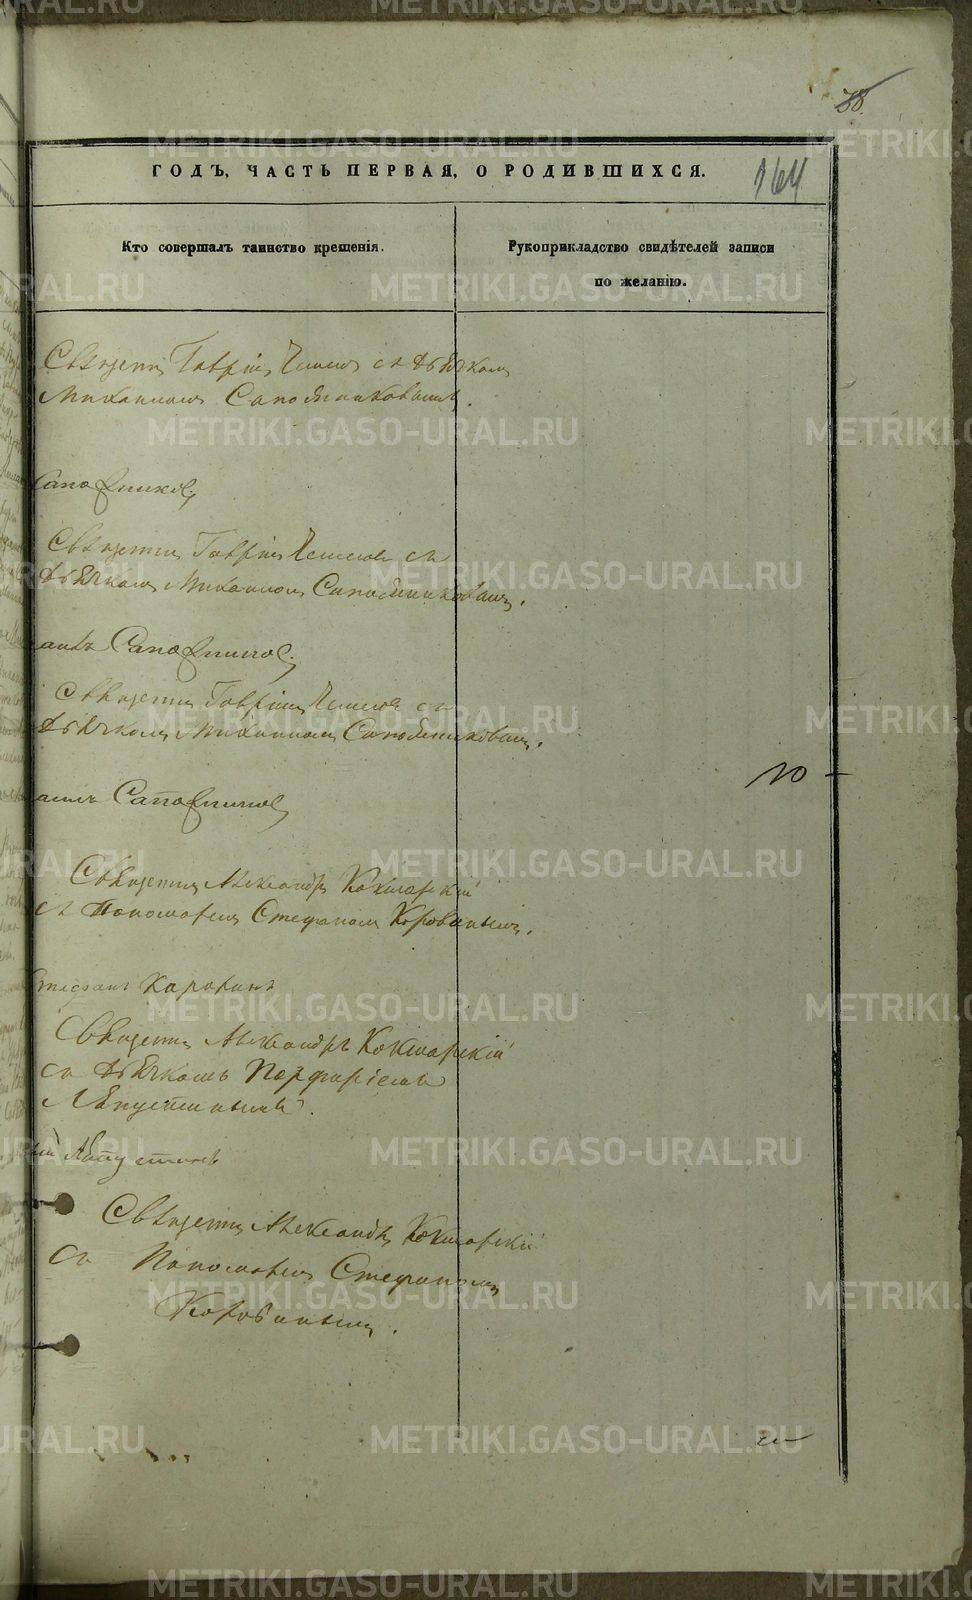 38.
ГОДЪ, ЧАСТЬ ПЕРВАЯ, О РОДИВШИХСЯ.
164
Кто совершалъ таинство крещенія.
Рукоприкладство свидѣтелей записи
по желанію.
Священникъ Гавріилъ съ дьячкомъ
Михаиломъ Сапожниковымъ.
Сапожниковъ
Священникъ Гавріилъ съ
дьячкомъ Михаиломъ Сапожниковымъ.
Сапожниковъ
Священникъ Гавріилъ съ
дьячкомъ Михаиломъ Сапожниковымъ.
Сапожниковъ
Священникъ Александръ Кокшарскій
съ Пономаремъ Стефаномъ Коровинымъ.
Стефанъ Каровинъ
Священникъ Александръ Кокшарскій
съ дьячкомъ Порфиріемъ
Ляпустинымъ.
Ляпустинъ
Священникъ Александръ Кокшарскій
съ Пономаремъ Стефаномъ
Коровинымъ.
METRIKI.GASO-URAL.RU